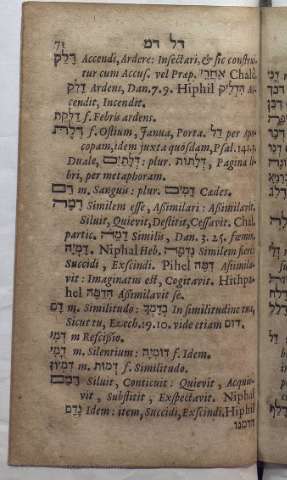 דל דמ
דָּלַק Accendi, Ardere: Insectari, & sic construi-
tur cum Accus. vel Præp. אַחֲרֵי Chald.
דְּלַק Ardens, Dan. 7. 9. Hiphil הִדְלִיק Ac-
cendit, Incendit.
דַּלֶּקֶת f. Febris ardens.
f. Ostium, Janua, Porta. דַּל per Apo-
copam, idem juxta quosdam, Psal. 141.3.
Duale, דְּלָתַיִם: plur. דְּלָתוֹת, Pagina li-
bri, per metaphoram.
דָּם m. Sanguis: plur. דָּמִים Cædes.
דָּמָה Similem esse, Assimilari: Assimilavit,
Siluit, Quievit, Destitit, Cessavit. Chal.
partic. דָּמֵה Similis, Dan. 3. 25. fœmin.
דָּמְיָה. Niphal Heb. נִדְמָה Similem fieri:
Succidi, Exscindi. Pihel דִּמָּה Assimila-
vit: Imaginatus est, Cogitavit. Hithpa-
hel אֶדַּמֶּה Assimilavit se.
דָּם m. Similitudo: בְּדָמְךָ In similitudine tua,
Sicut tu, Ezech. 19. 10. vide etiam דום.
דְּמִי m Rescisio.
דֳּמִי m. Silentium: דּוּמִיָּה f. Idem.
דִּמְיוֹן m. דְּמוּת f. Similitudo.
דָּמַם Siluit, Conticuit: Quievit, Acquie-
vit, Substitit, Exspectavit. Niphal
נָדַם Idem: item, Succidi, Exscindi. Hiphil